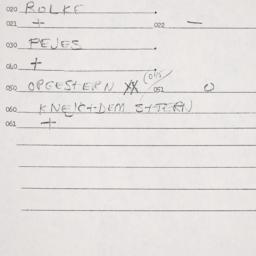 020 ROLKE
021 + 022 —
030 PEJES
040 +
050 OPGESTERN XX (015) 051 0
060 KNEJCHDEM STTERN
061 +